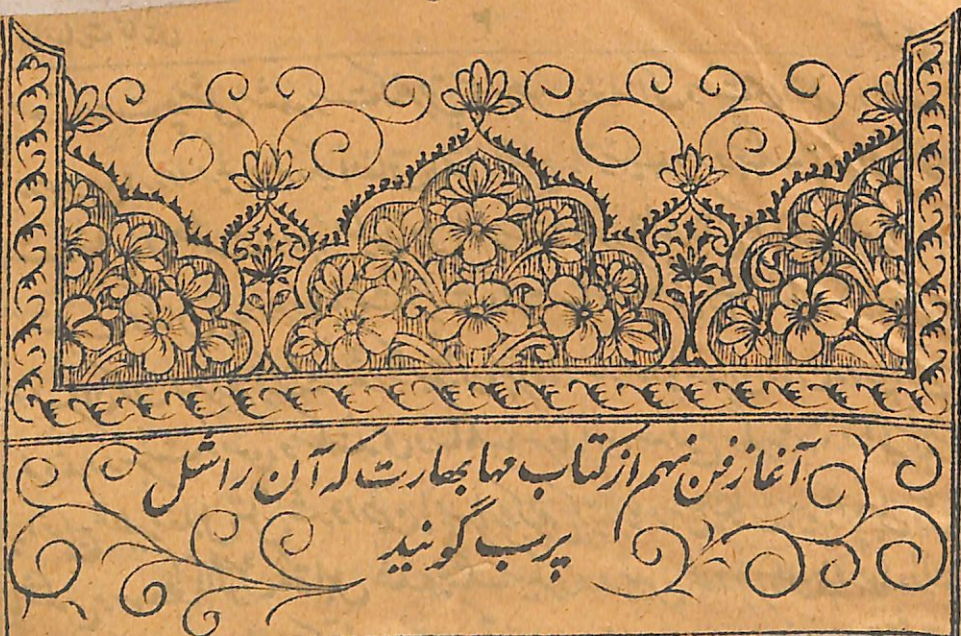 آغاز فن نهم از کتاب مهابهارت که آن را شل
پرب گویند